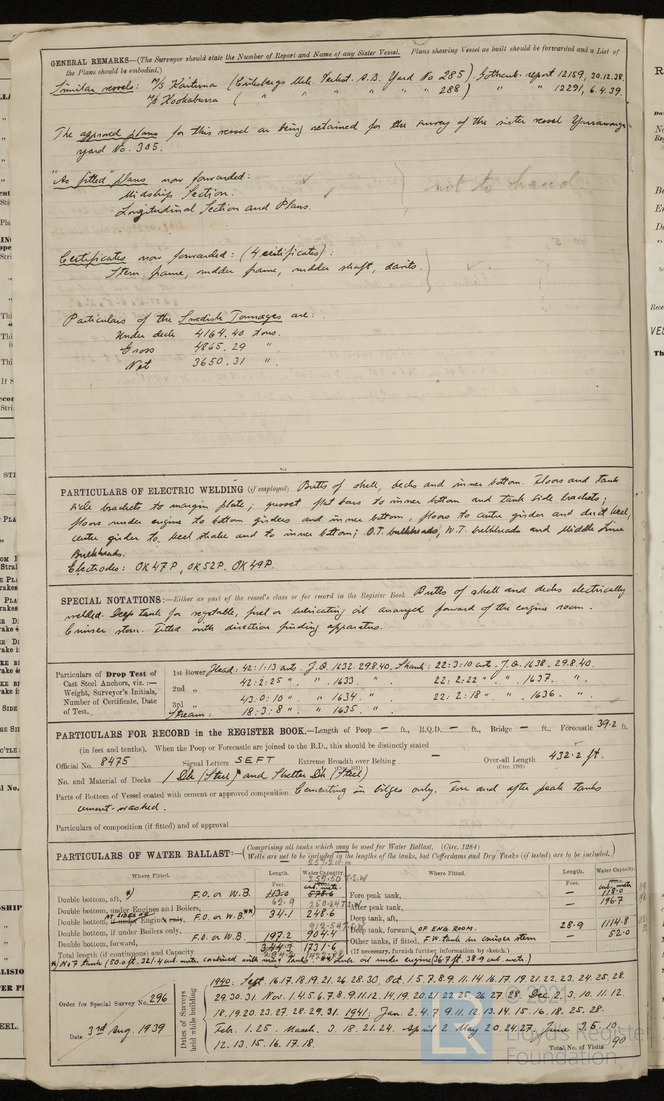 GENERAL REMARKS—(The Surveyor should state the Number of Report and Name of any Sister Vessel. Plans showing Vessel as built should be forwarded and a List of
the Plans should be embodied.)
Similar vessels: M/S Kaituna ( Yard No 285). Gothenb. report 12159, 30.12.38.
M/S Kookaburra ( " " " " " " 288) " " 12291, 6.4.39.
The approved plans for this vessel are being retained for the survey of the sister vessel
yard No. 305.
"As fitted" plans now forwarded:
Midship Section.
Longitudinal Section and Plans.
not to hand
Certificates now forwarded: (4 certificates):
Stern frame, rudder frame, rudder shaft, davits.
Particulars of the Swedish Tonnages are:
Under deck 4164.40 tons.
Gross 4865.29 "
Net 3650.31 ".
PARTICULARS OF ELECTRIC WELDING (if employed) Butts of shell, decks and inner bottom. Floors and tank
side brackets to margin plate; gusset flat bars to inner bottom and tank side brackets;
floors under engine to bottom girders and inner bottom, floors to centre girder and duct keel,
centre girder to keel strake and to inner bottom; O.T. bulkheads, W.T. bulkheads and Middle Line
Bulkheads.
Electrodes: OK47P, OK52P, OK49P.
SPECIAL NOTATIONS:—Either as part of the vessel's class or for record in the Register Book. Butts of shell and decks electrically
welded. Deep tank for vegetable, fuel or lubricating oil arranged forward of the engine room.
Cruiser stern. Fitted with direction finding apparatus.
Particulars of Drop Test of
Cast Steel Anchors, viz.:—
Weight, Surveyor's Initials,
Number of Certificate, Date
of Test.
1st Bower Head: 42:1:13 cwts. J.Q. 1632. 29.8.40. Shank: 22:3:10 cwt. J.Q. 1638. 29.8.40.
2nd " 42:2:25 " " 1633. " 22:2:22 " " 1637. "
3rd " 43:0:10 " " 1634. " 22:2:18 " " 1636. "
Stream: 18:3:8 " " 1635. "
PARTICULARS FOR RECORD in the REGISTER BOOK.—Length of Poop — ft., R.Q.D. — ft., Bridge — ft., Forecastle 39.2 ft.
(in feet and tenths). When the Poop or Forecastle are joined to the B.D., this should be distinctly stated
Official No. 8475 Signal Letters SEFT Extreme Breadth over Belting — Over-all Length 432.2 ft.
No. and Material of Decks 1 Dk (Steel) and Shelter Dk (Steel)
Parts of Bottom of Vessel coated with cement or approved composition Cementing in bilges only. Fore and after peak tanks
cement-washed.
Particulars of composition (if fitted) and of approval
PARTICULARS OF WATER BALLAST:—(Comprising all tanks which may be used for Water Ballast. (Circ. 1284)
Wells are not to be included in the lengths of the tanks, but Cofferdams and Dry Tanks (if tested) are to be included.)
Where Fitted. Length. Water Capacity. Where Fitted. Length. Water Capacity.
Feet. Feet.
Double bottom, aft, *) F.O. or W.B. 113.0 578.6 Fore peak tank, — 118.0
Double bottom, under Engines and Boilers, After peak tank, — 196.7
Double bottom, F.O. or W.B. **) 34.1 248.6 Deep tank, aft,
Double bottom, if under Boilers only, Deep tank, forward, OF ENG. ROOM. 28.9 1114.8
Double bottom, forward, F.O. or W.B 197.2 904.4 Other tanks, if fitted, F.W. tank in cruiser stern — 52.0
Total length (if continuous) and Capacity 344.3 1731.6 (If necessary, furnish further information by sketch.)
*) No 7 tank (50.0 ft. 321.4 cub. metr. combined with wing tanks. **) lub. oil under engine (36.7 ft. 38.9 cub. metr.)
Order for Special Survey No. 296
Date 3rd Aug. 1939
Dates of Surveys held while building
1940. Sept. 16.17.18.19.21.26.28.30. Oct. 1.5.7.8.9.11.14.16.17.19.21.22.23.24.25.28.
29.30.31. Nov. 1.4.5.6.7.8.9.11.12.14.19.20.21.22.25.26.27.28. Dec. 2.3.10.11.12.
18.19.20.23.27.28.29.31. 1941: Jan. 2.4.7.9.11.12.13.14.15.16.18.25.28.
Feb. 1.25. March. 3.18.21.24. April 2 May 20.24.27. June 3.5.10.
12.13.15.16.17.18.
Total No. of Visits 90
© 2021
Lloyd's Register
Foundation